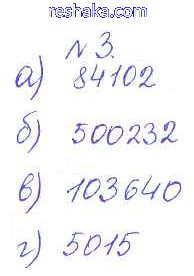 reshaka.com
N 3.
а) 84102
б) 500232
в) 103640
г) 5015